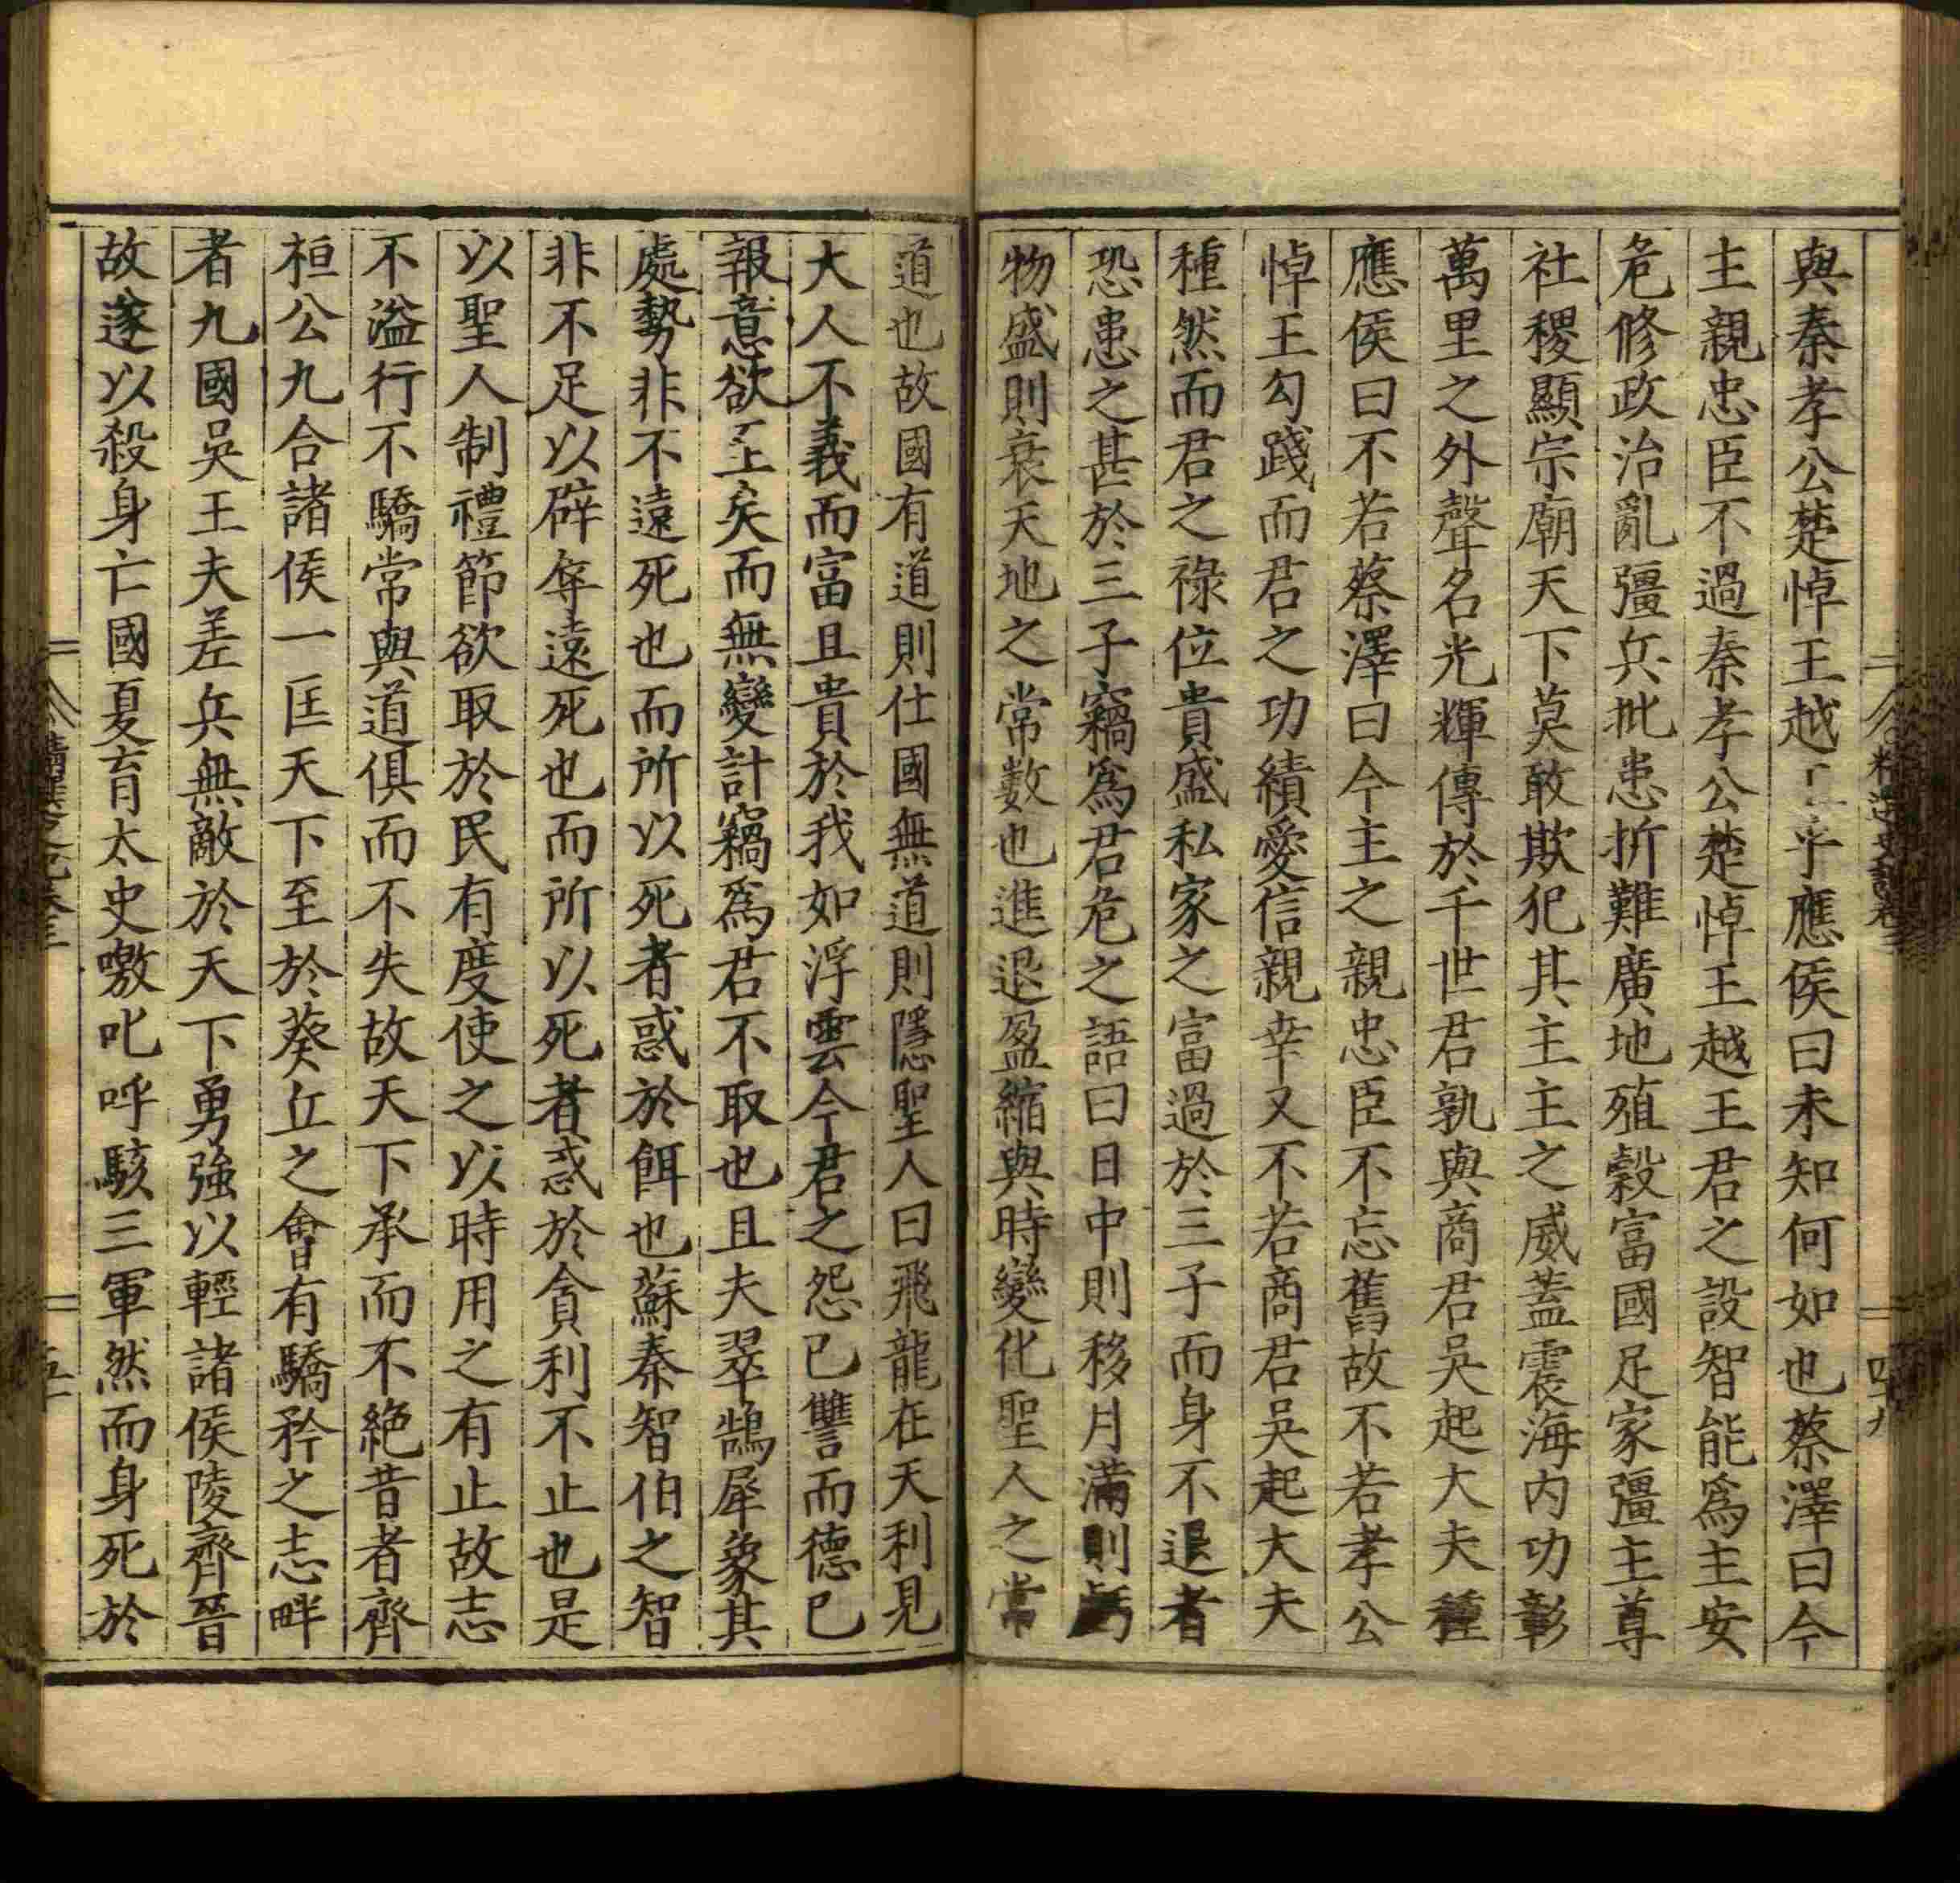 與秦孝公楚悼王越王乎應侯曰未知何如也蔡澤曰今
主親忠臣不過秦孝公楚悼王越王君之設智能爲主安
危修政治亂彊兵批患折難廣地殖穀富國足家彊主尊
社稷顯宗廟天下莫敢欺犯其主主之威蓋震海内功彰
萬里之外聲名光輝傳於千世君孰與商君吳起大夫種
應侯曰不若蔡澤曰今主之親忠臣不忘舊故不若孝公
悼王勾踐而君之功績愛信親幸又不若商君吳起大夫
種然而君之祿位貴盛私家之富過於三子而身不退者
恐患之甚於三子竊爲君危之語曰日中則移月滿則虧
物盛則衰天地之常數也進退盈縮與時變化聖人之常
道也故國有道則仕國無道則隱聖人曰飛龍在天利見
大人不義而富且貴於我如浮雲今君之怨已讐而德已
報意欲至矣而無變計竊爲君不取也且夫翠鵠犀象其
處勢非不遠死也而所以死者惑於餌也蘇秦智伯之智
非不足以辟辱遠死也而所以死者惑於貪利不止也是
以聖人制禮節欲取於民有度使之以時用之有止故志
不溢行不驕常與道俱而不失故天下承而不絶昔者齊
桓公九合諸侯一匡天下至於葵丘之會有驕矜之志畔
者九國吳王夫差兵無敵於天下勇強以輕諸侯陵齊晉
故遂以殺身亡國夏育太史噭叱呼駭三軍然而身死於